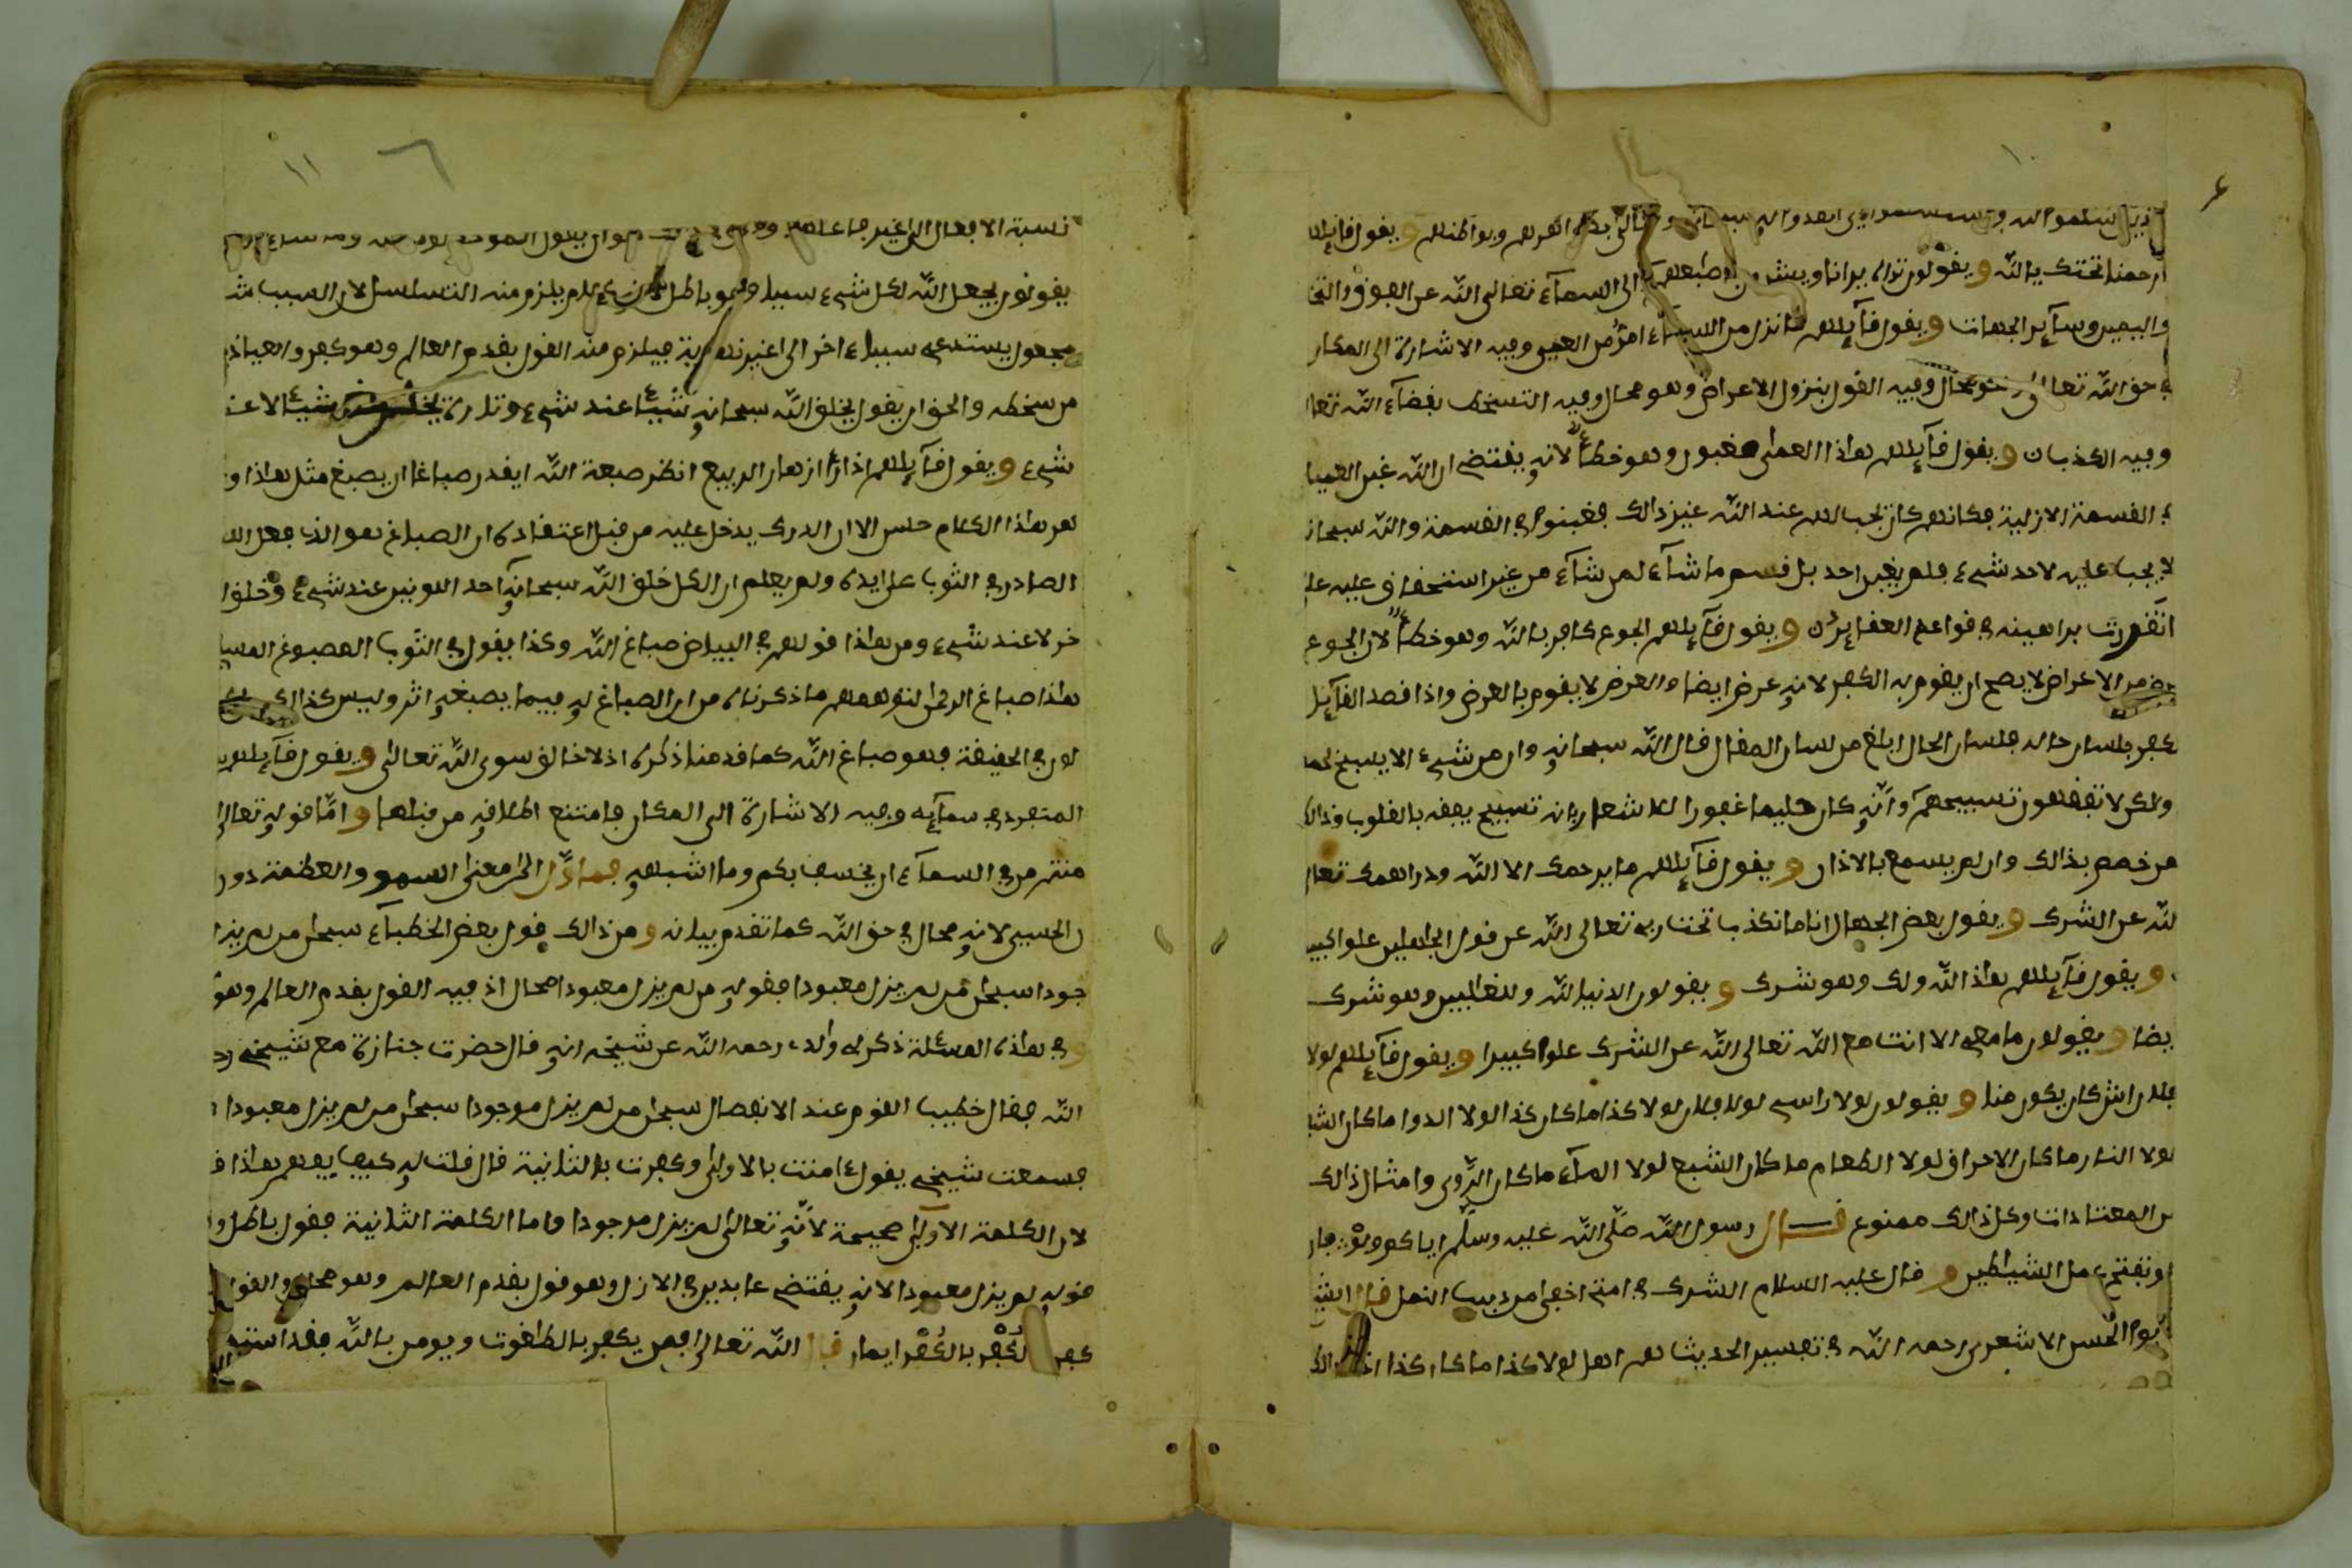 ١٠
ويقول قايلهم
ارحمنا تحتك يا الله ويقولون تراه يرانا الى السمآء تعالى الله عن الفوق والتحت
واليمين وسآير الجهات ويقول قآيلهم ما نزل من السمآء امرّ من العمى وفيه الاشارة الى المكان
في حق الله تعالى وفيه القول بنزول الاعراض وهو محال وفيه التسخط بقضآء الله تعالى
وفيه الكذبان ويقول قآيلهم هاذا العمى مغبون وهو خطأ لانه يقتضي ان الله غبن العميان
في القسمة الازلية فكانهم كان يجب لهم عند الله غير ذالك فغبنوا في القسمة والله سبحانه
لا يجب عليه لاحد شيء فلم يغبن احد بل قسم ما شآء لمن شآء من غير استحقاق عليه على
ما تقررت براهينه في قواعد العقايد ويقول قآيلهم الجوع كافر بالله وهو خطأ لان الجوع
عرض من الاعراض لا يصح ان يقوم به الكفر لانه عرض ايضا والعرض لا يقوم بالعرض واذا قصد القآيل
كفر بلسان حاله فلسان الحال ابلغ من لسان المقال قال الله سبحانه وان من شيء الا يسبح بحمده
ولكن لا تفقهون تسبيحهم وانه كان حليما غفورا للاشعار بان تسبيح يفقه بالقلوب وذالك
من خصص بذالك وان لم يسمع بالاذان ويقول قآيلهم ما يرحمك الا الله ودراهمك تعالى
الله عن الشرك ويقول بعض الجهال انا ما نكذب تعالى الله عن قول الجاهلين علوا كبيرا
ويقول قآيلهم هاذ الله ولك وهو شرك ويقولون الدنيا لله وللغالبين وهو شرك
ايضا ويقولون ما معي الا انت مع الله تعالى الله عن الشرك علوا كبيرا ويقول قآيلهم لولا
فلان اش كان يكون منا ويقولون لولا راسي لولا فلان لولا كذا ما كان كذا لولا الدوا ما كان الشفا
لولا النار ما كان الاحراق لولا الطعام ما كان الشبع لولا المآء ما كان الرّوى وامثال ذالك
من المعتادات وكل ذالك ممنوع قال رسول الله صلّى الله عليه وسلّم اياكم ولو فان
لو تفتح عمل الشياطين وقال عليه السلام الشرك في امتي اخفى من دبيب النمل قال الشيخ
ابو الحسن الاشعري رحمه الله في تفسير الحديث هم اهل لولا كذا ما كان كذا
١١
نسبة الافعال الى غير فاعلها
يقولون يجعل الله لكل شيء سببا وهو باطل يلزم منه التسلسل لان السبب شيء
مجعول يستدعي سببا اخر الى غير نهاية فيلزم منه القول بقدم العالم وهو كفر والعياذ بالله
من سخطه والحق ان يقول يخلق الله سبحانه شيئا عند شيء وتارة يخلق شيئا لا عند
شيء ويقول قآيلهم اذا رأ ازهار الربيع انظر صبغة الله ايقدر صباغا ان يصبغ مثل هاذا و
هو هاذا الكلام حسن الا ان الدرك يدخل عليه من قبل اعتقاده ان الصباغ هو الذي فعل اللون
الصادر في الثوب على يده ولم يعلم ان الكل خلق الله سبحانه احد اللونين عند شيء وخلق الا
خر لا عند شيء ومن هاذا قولهم في البياض صباغ الله وكذا يقول في الثوب المصبوغ
هاذا صباغ الرحمن لتوهمهم ما ذكرناه من ان الصباغ له فيما يصبغه اثر وليس كذالك بل كل
لون في الحقيقة فهو صباغ الله كما قدمنا ذكره اذ لا خالق سوى الله تعالى ويقول قآيلهم يا
المتفرد في سمآيه وفيه الاشارة الى المكان فامتنع اطلاقه من قبلها واما قوله تعالى
منتم من في السمآء ان يخسف بكم وما اشبهه فماوّل الى معنى السمو والعظمة دون
الحسي لانه محال في حق الله كما تقدم بيانه ومن ذالك قول بعض الخطبآء سبحان من لم يزل مو
جودا سبحان من لم يزل معبودا فقوله من لم يزل معبودا محال اذ فيه القول بقدم العالم وهو
وفي هاذه المسئلة ذكر لي والدي رحمه الله عن شيخه انه قال حضرت جنازة مع شيخي رحمه
الله فقال خطيب القوم عند الانفصال سبحان من لم يزل موجودا سبحان من لم يزل معبودا
فسمعت شيخي يقول ءامنت بالاولى وكفرت بالثانية قال قلت له كيف يفهم هاذا
لان الكلمة الاولى صحيحة لانه تعالى لم يزل موجودا واما الكلمة الثانية فقول باطل و
قوله لم يزل معبودا لانه يقتضي عابدين في الازل وهو قول بقدم العالم وهو محال والقول
كفر الكفر بالكفر ايمان قال الله تعالى فمن يكفر بالطاغوت ويومن بالله فقد استمسك